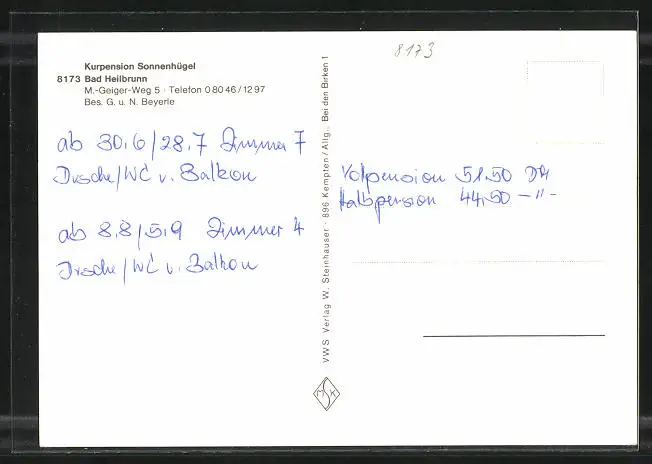 Kurpension Sonnenhügel
8173 Bad Heilbrunn
M.-Geiger-Weg 5 · Telefon 0 80 46 / 12 97
Bes. G. u. N. Beyerle
ab 30.6/28.7 Zimmer 7
Dusche/WC u. Balkon
ab 8.8/5.9 Zimmer 4
Dusche/WC u. Balkon
VWS Verlag W. Steinhauser · 896 Kempten/Allg., Bei den Birken 1
MSK
8173
Volpension 51.50 DM
Halbpension 44,50 —"—